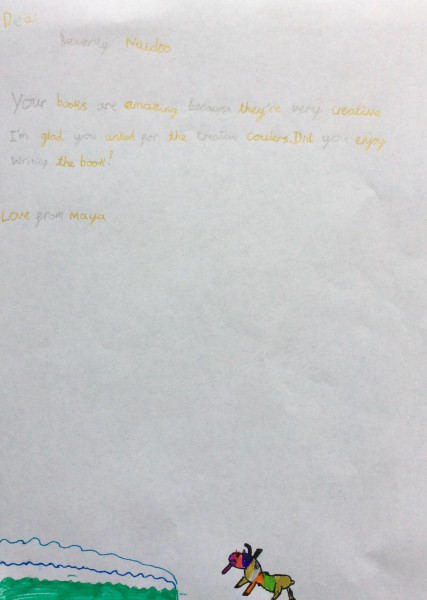 Dea
Beverly Naidoo
Your books are amazing because they're very creative
I'm glad you asked for the creative coulers. Did you enjoy
writing the book?
Love from Maya